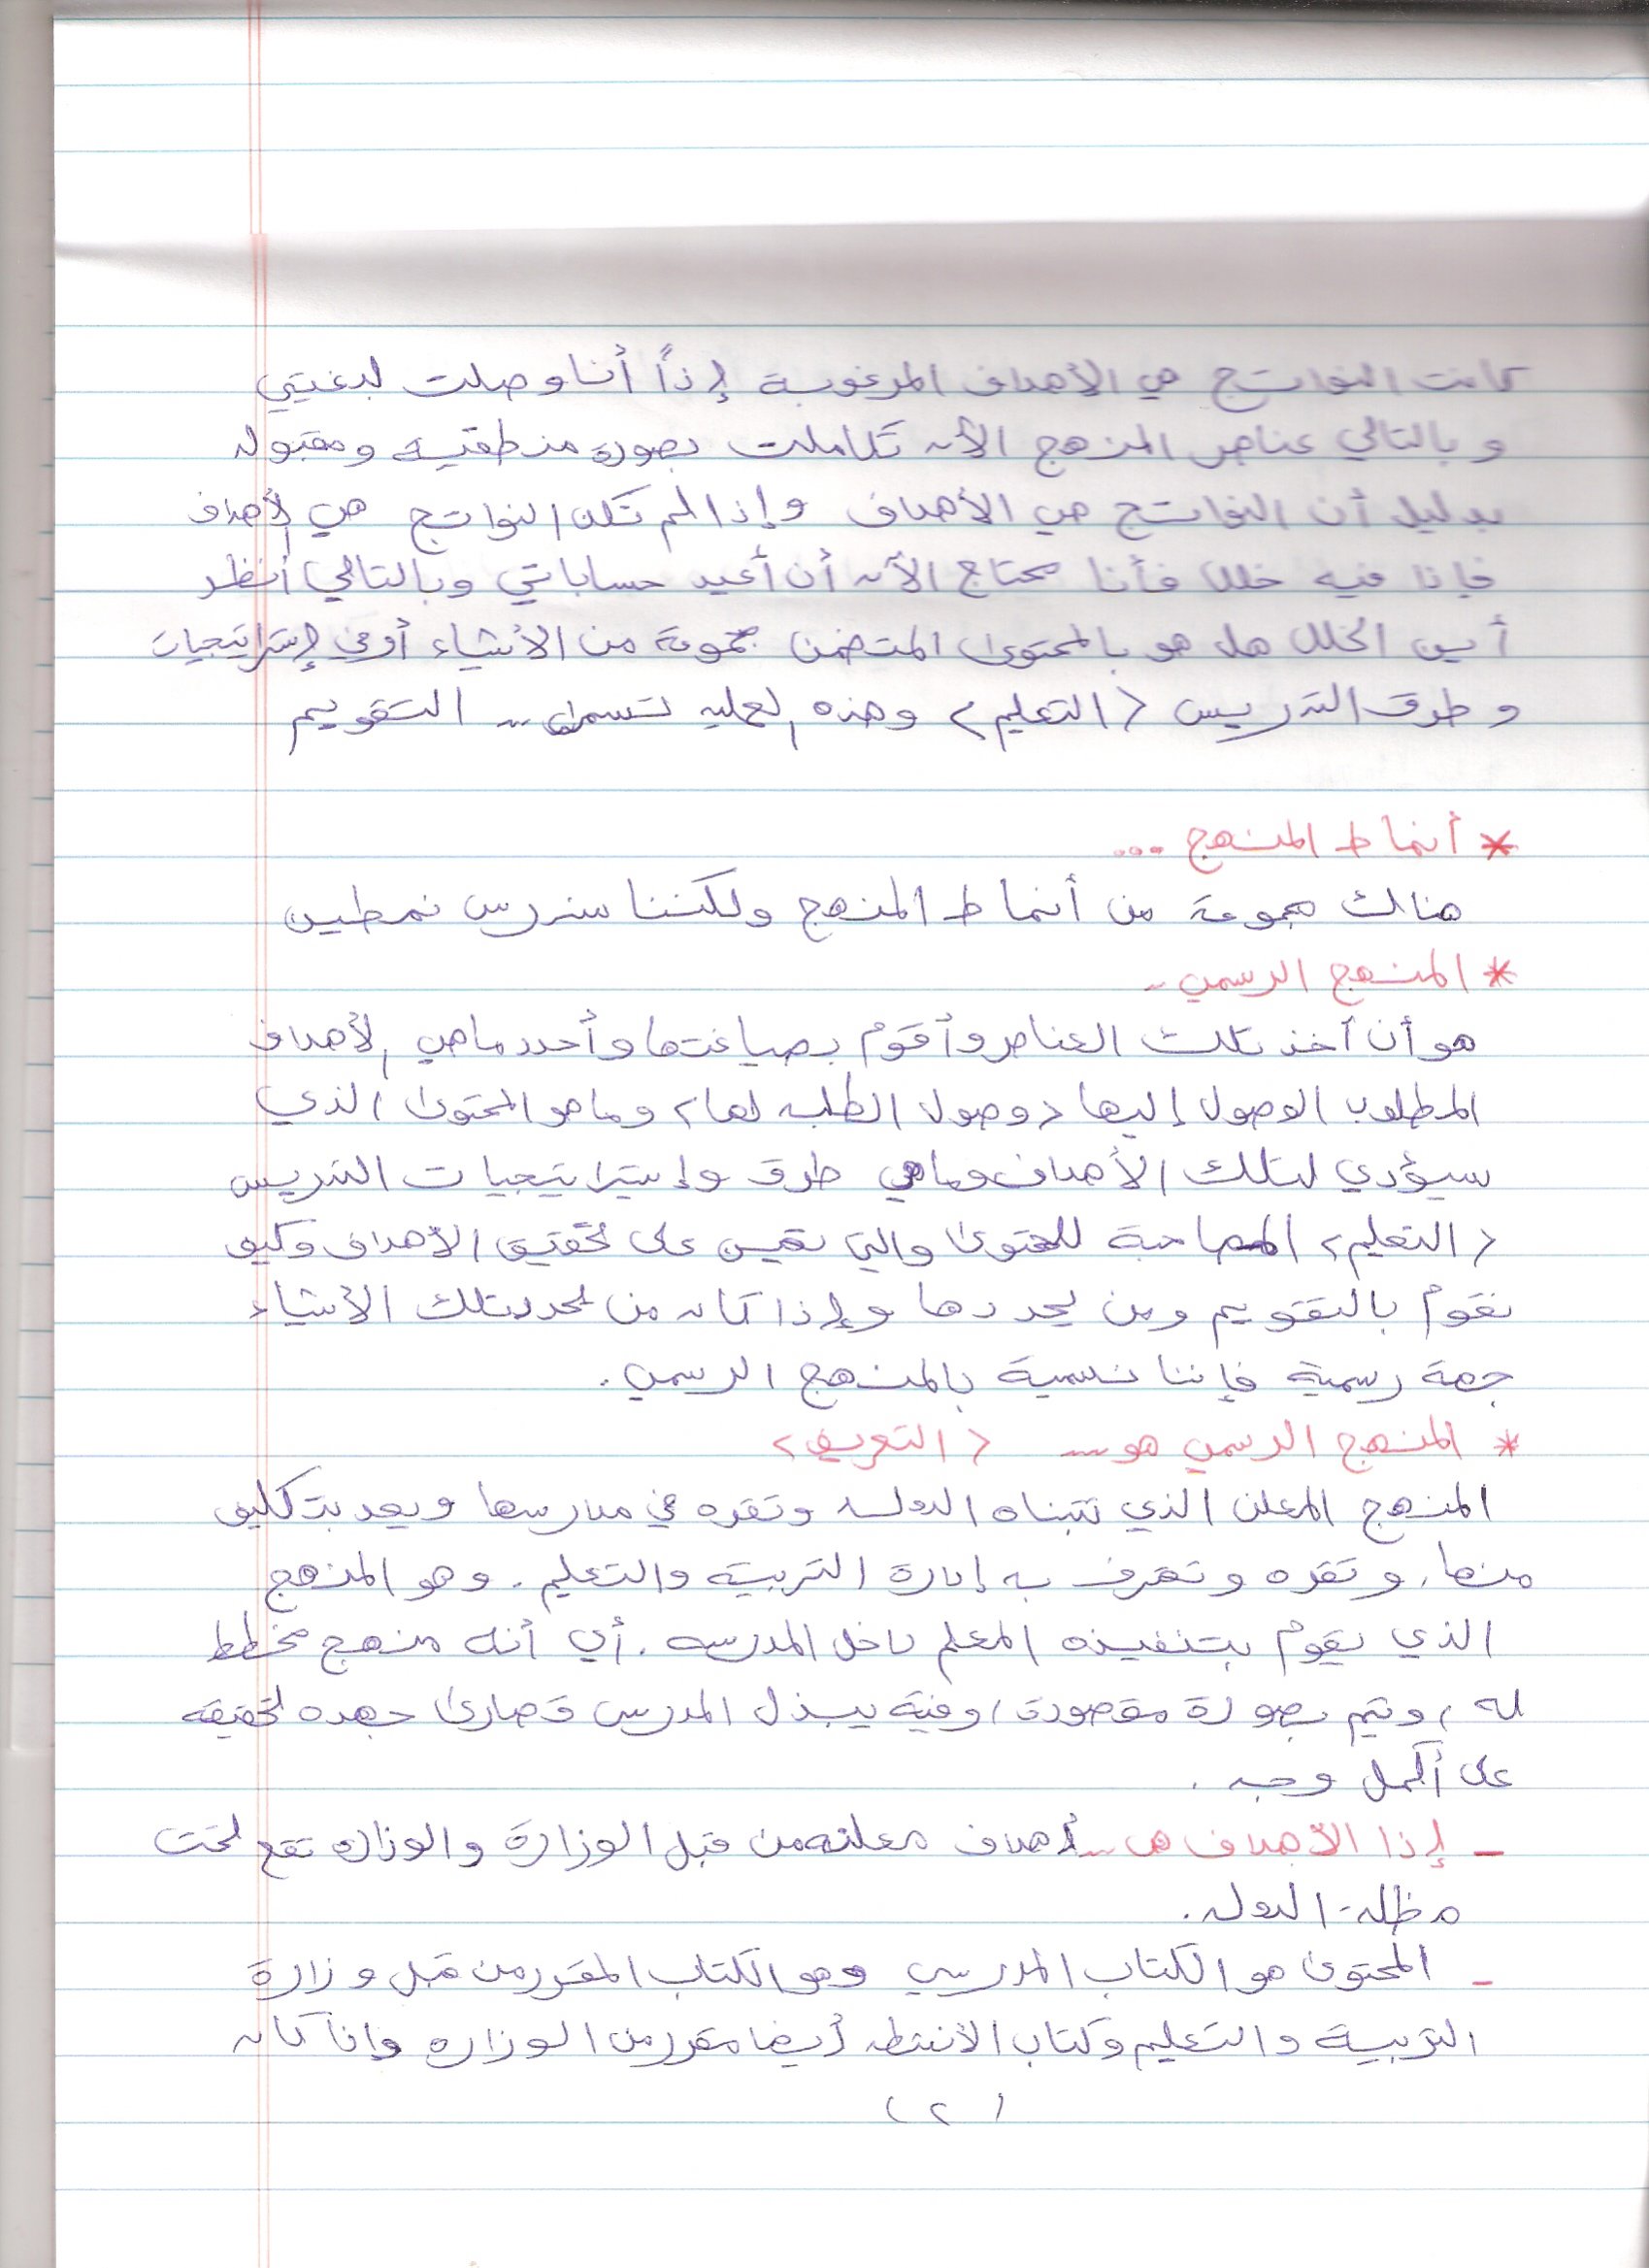 كانت النواتج هي الأهداف المرغوبة إذاً أنا وصلت لبغيتي
وبالتالي عناصر المنهج الآن تكاملت بصورة منطقية ومقبوله
بدليل أن النواتج هي الأهداف وإذا لم تكن النواتج هي الأهداف
فإذا فيه خلل فأنا محتاج الآن أن أعيد حساباتي وبالتالي أنظر
أين الخلل هل هو بالمحتوى المتضمن مجموعة من الأشياء أو في إستراتيجيات
وطرق التدريس <التعليم> وهذه العمليه تسمى .. التقويم
* أنماط المنهج ...
هناك مجموعة من أنماط المنهج ولكننا سندرس نمطين
* المنهج الرسمي ..
هو أن آخذ تلك العناصر وأقوم بصياغتها وأحدد ماهي الأهداف
المطلوب الوصول إليها <وصول الطلبه لها> وماهو المحتوى الذي
سيؤدي لتلك الأهداف وماهي طرق وإستراتيجيات التدريس
<التعليم> المصاحبة للمحتوى والتي تعين على تحقيق الأهداف وكيف
نقوم بالتقويم ومن يحددها وإذا كان من يحدد تلك الأشياء
جهة رسمية فإننا نسمية بالمنهج الرسمي .
* المنهج الرسمي هو ... <التعريف>
المنهج المعلن الذي تتبناه الدوله وتقره في مدارسها ويعد بتكليف
منها، وتقره وتعرف به إدارة التربية والتعليم . وهو المنهج
الذي يقوم بتنفيذه المعلم داخل المدرسه . أي أنه منهج مخطط
له ، ويتم بصورة مقصودة ، وفية يبذل المدرس قصارى جهده لتحقيقه
على أكمل وجه .
- إذا الأهداف هي .. أهداف معلنه من قبل الوزارة والوزاره تقع تحت
مظلة الدوله .
- المحتوى هو الكتاب المدرسي وهو الكتاب المقرر من قبل وزارة
التربية والتعليم وكتاب الأنشطه أيضا مقرر من الوزاره وإذا كان
(٢)